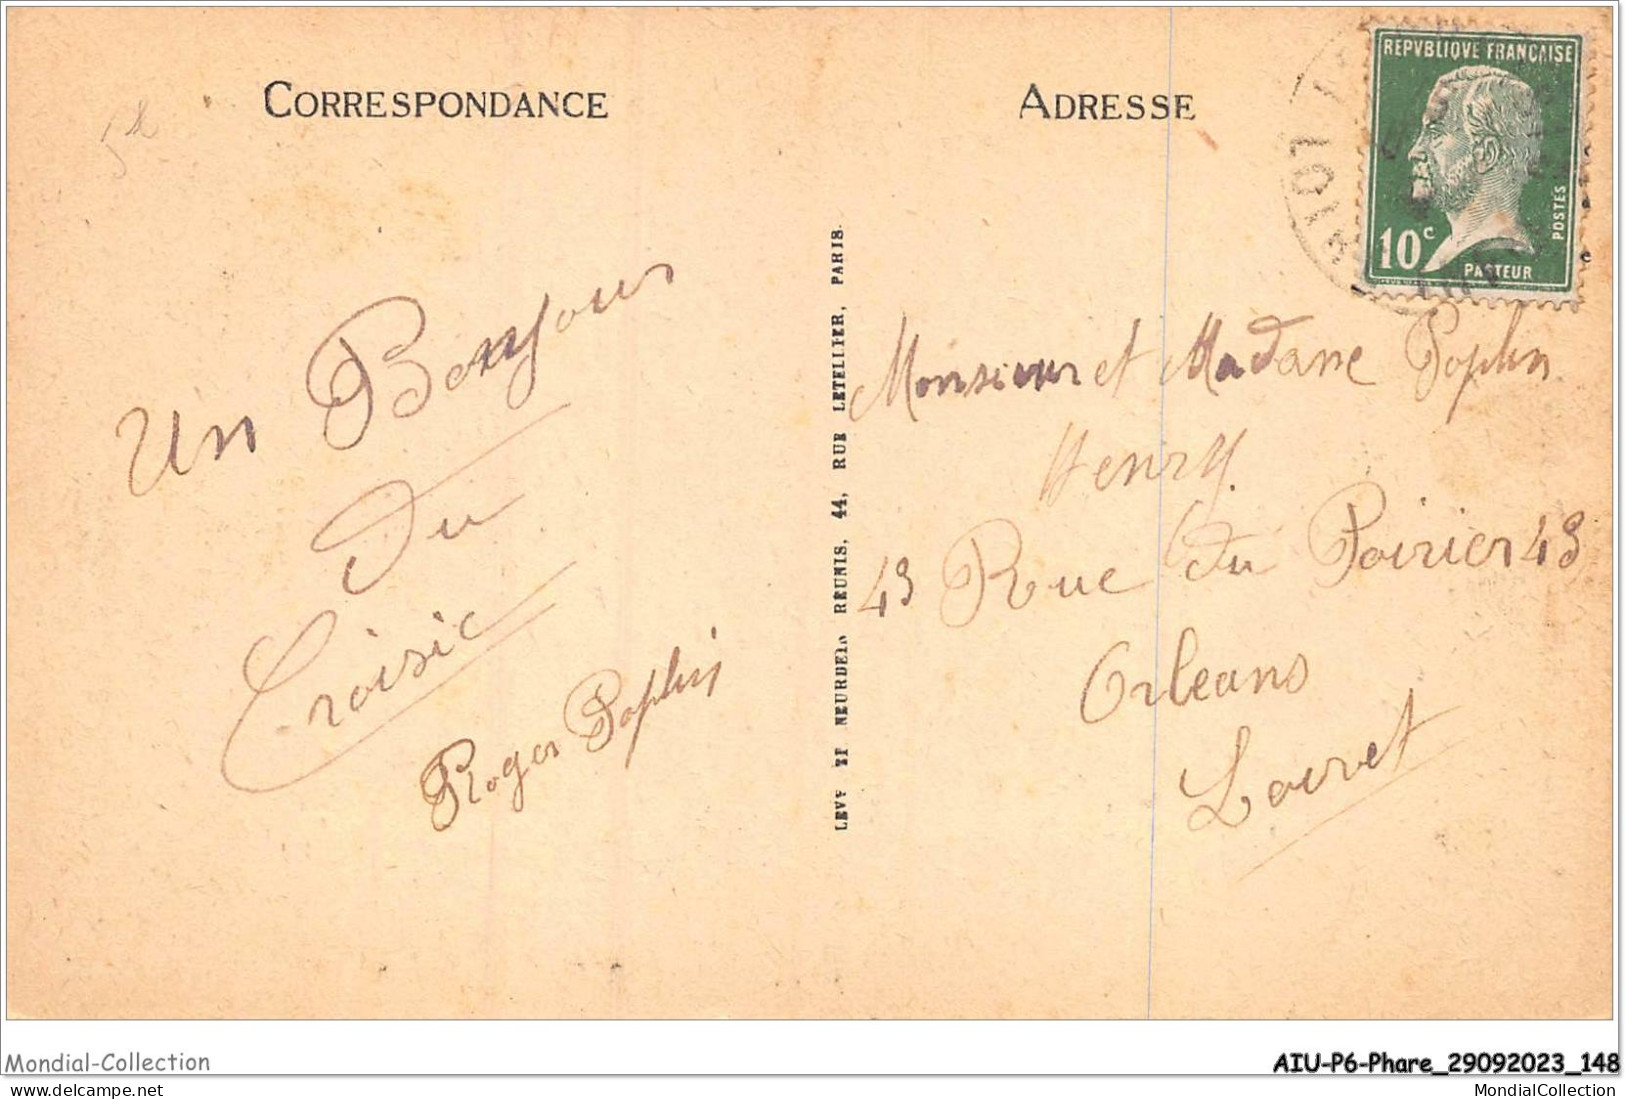 CORRESPONDANCE
ADRESSE
REPVBLIQVE FRANCAISE
10c
POSTES
PASTEUR
Un Bonjour
Du
Croisic
Roger Poplin
LEVY ET NEURDEIN REUNIS, 44, RUE LETELLIER, PARIS.
Monsieur et Madame Poplin
Henry
43 Rue du Poirier 43
Orleans
Loiret
Mondial-Collection
AIU-P6-Phare_29092023_148
MondialCollection